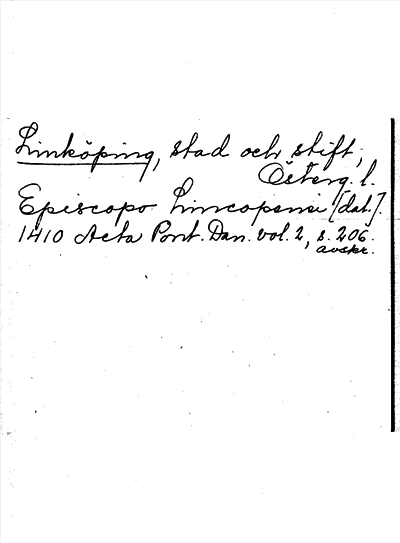 Linköping, stad och stift,
Österg. l.
Episcopo Lincopensi [dat.].
1410 Acta Pont. Dan. vol. 2, s. 206.
avskr.